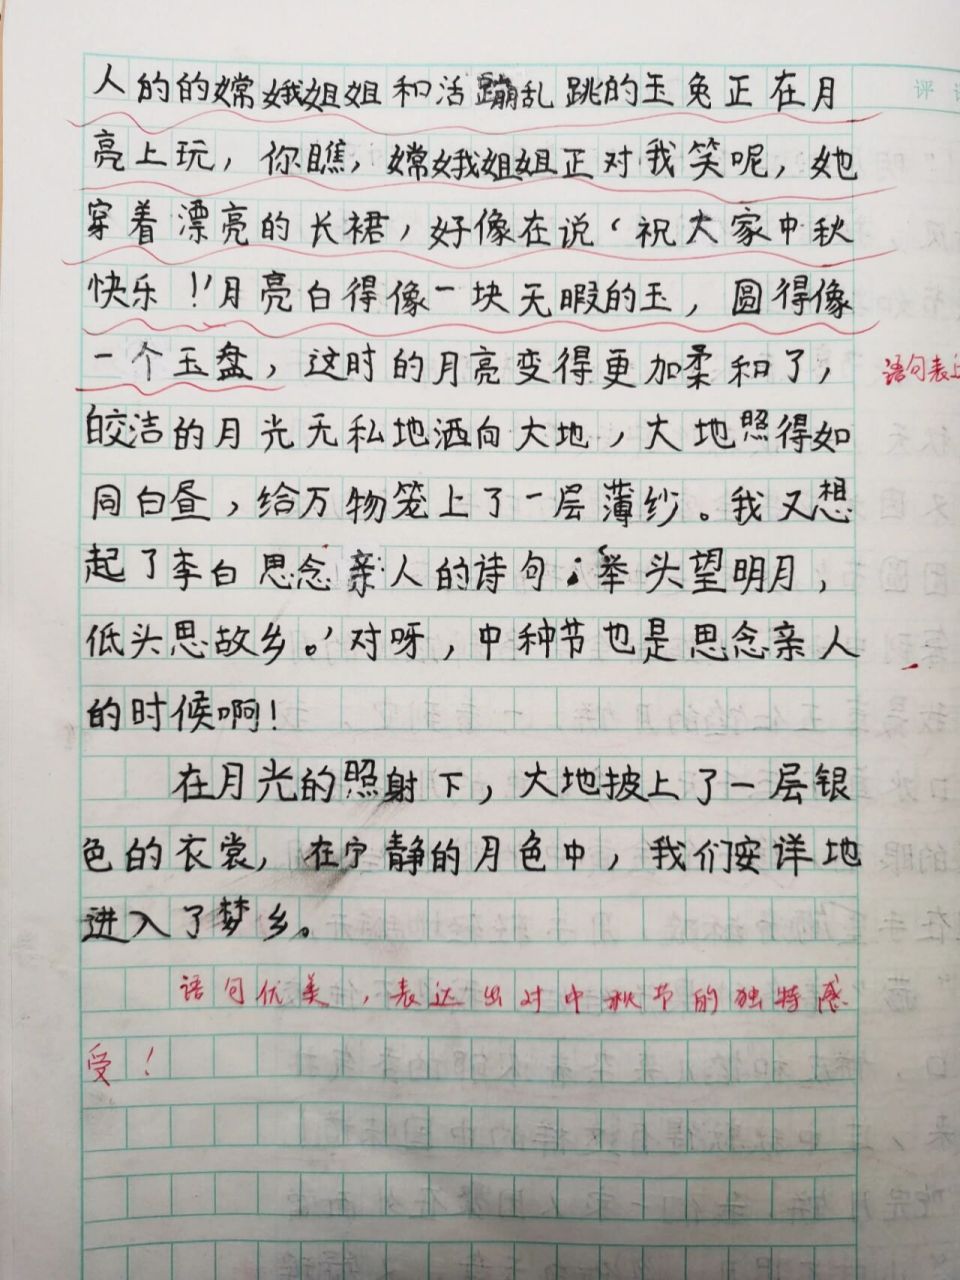 人的的嫦娥姐姐和活蹦乱跳的玉兔正在月
亮上玩，你瞧，嫦娥姐姐正对我笑呢，她
穿着漂亮的长裙，好像在说‘祝大家中秋
快乐！’月亮白得像一块无暇的玉，圆得像
一个玉盘，这时的月亮变得更加柔和了，
语句表达
皎洁的月光无私地洒向大地，大地照得如
同白昼，给万物笼上了一层薄纱。我又想
起了李白思念亲人的诗句：‘举头望明月，
低头思故乡。’对呀，中秋节也是思念亲人
的时候啊！
在月光的照射下，大地披上了一层银
色的衣裳，在宁静的月色中，我们安详地
进入了梦乡。
语句优美，表达出对中秋节的独特感
受！